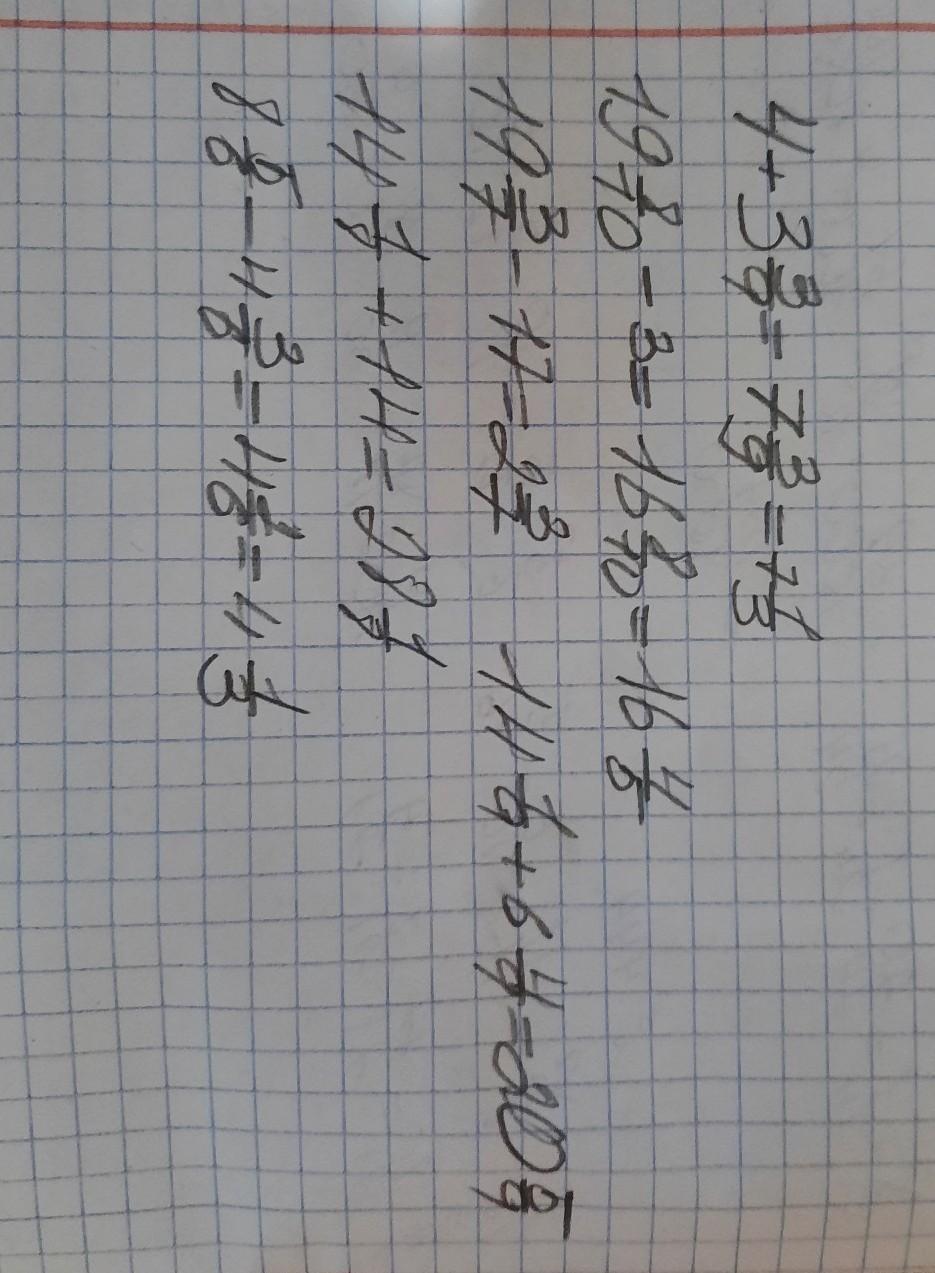 4 + 3 3/9 = 7 3/9 = 7 1/3
19 8/10 - 3 = 16 8/10 = 16 4/5
19 3/7 - 17 = 2 3/7 14 1/9 + 6 4/9 = 20 5/9
14 1/8 + 14 = 28 1/8
8 5/6 - 4 3/6 = 4 2/6 = 4 1/3